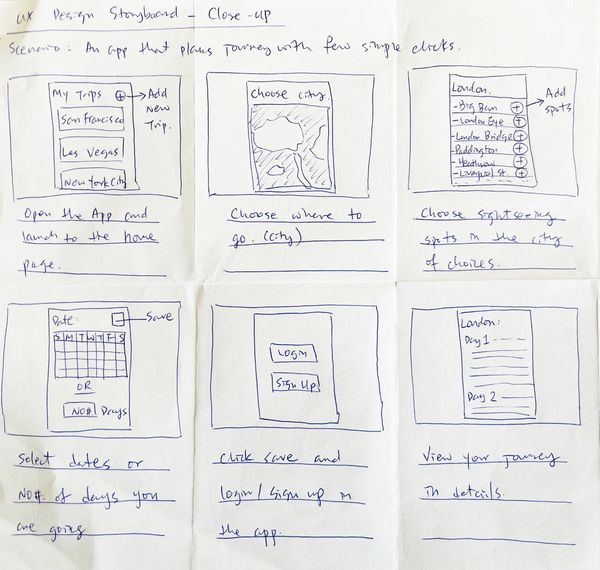 UX Design Storyboard - Close-up
Scenario: An app that plans journey with few simple clicks.
My Trips + → Add New Trip.
San Francisco
Las Vegas
New York City
Open the App and
launch to the home
page.
Choose city.
Choose where to
go. (city)
London.
-Big Ban +
-London Eye +
-London Bridge +
-Paddington +
-Heathrow +
-Liverpool St. +
→ Add spots.
Choose sightseeing
spots in the city
of choices.
Date: Save
S M T W T F S
OR
NO#. Days
Select dates or
NO#. of days you
are going
Login
Sign Up
Click save and
login / sign up in
the app.
London:
Day 1
Day 2
View your journey
in details.